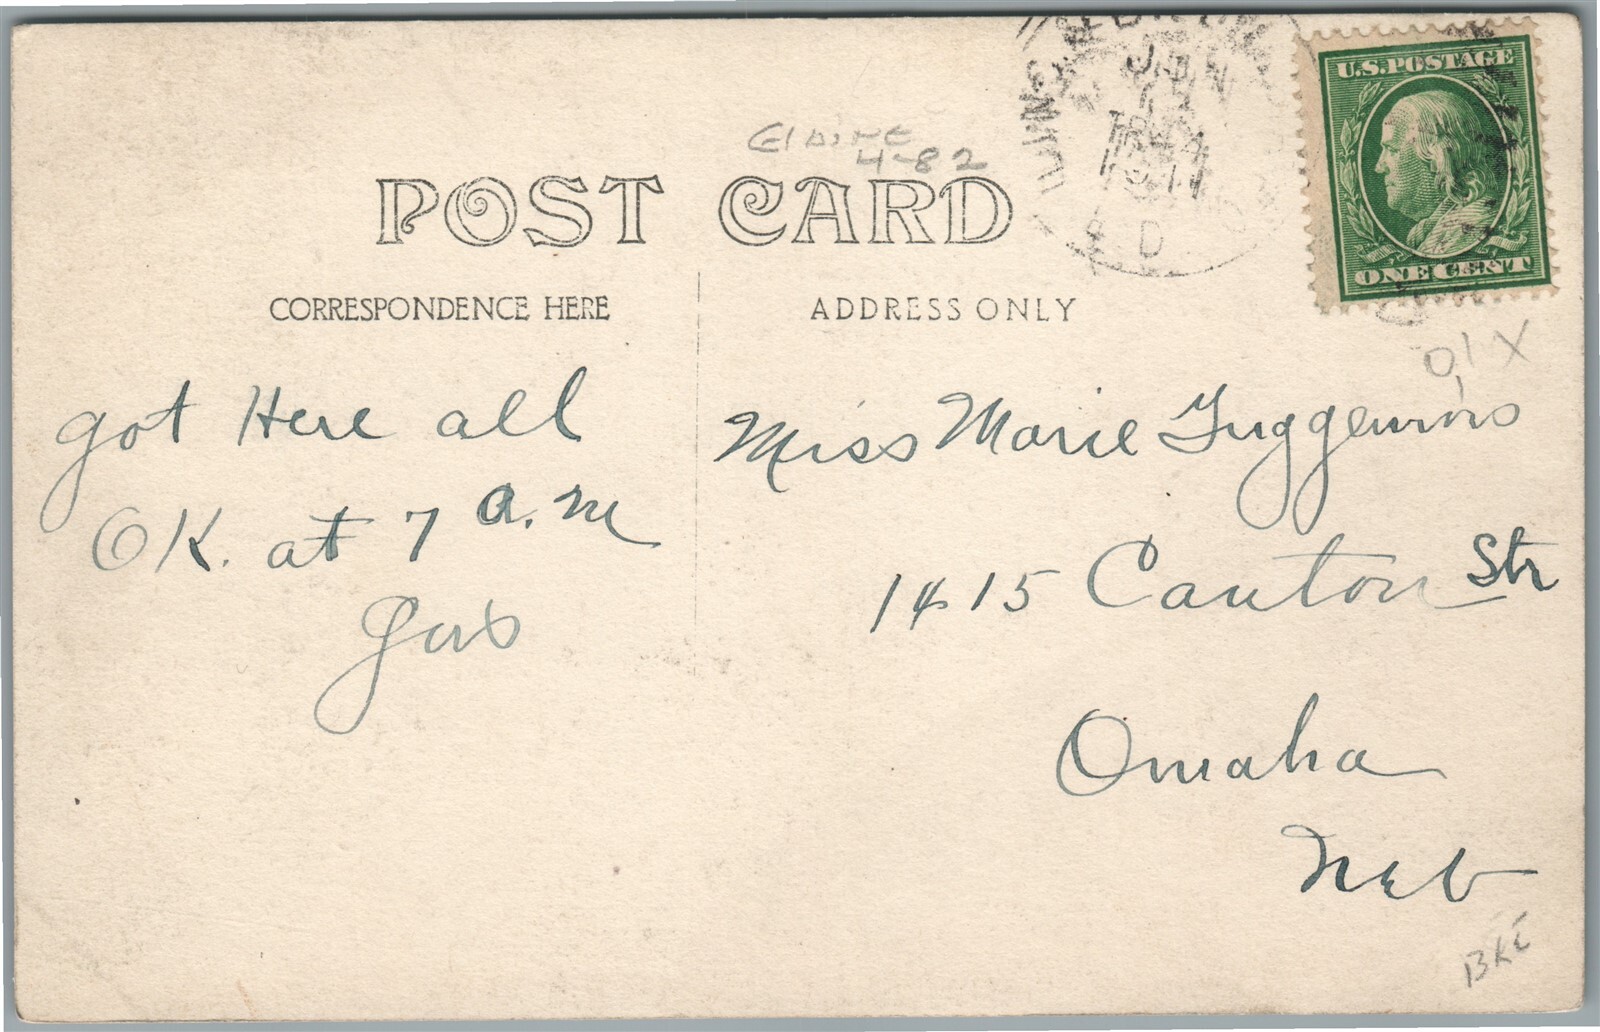 Elaine
4-82
POST CARD
CORRESPONDENCE HERE
ADDRESS ONLY
U.S. POSTAGE
ONE CENT
JAN
D
got Here all
OK. at 7 a.m
Gus
Miss Marie
1415 Canton Str
Omaha
Neb
BKE